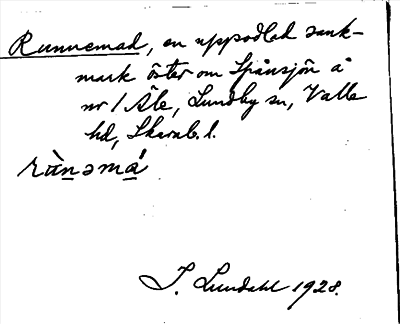 Runnemad, en uppodlad sank-
mark öster om Spånsjön å
nr 1 Åle, Lundby sn, Valle
hd, Skarab. l.
rùnəmá
I. Lundahl 1928.